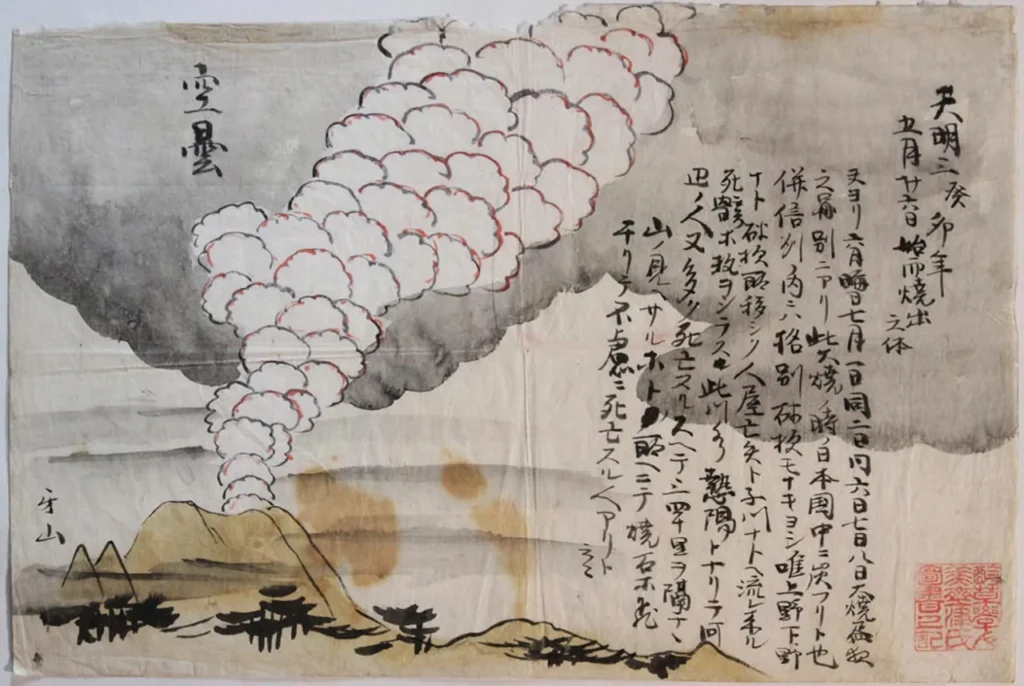 天明三癸卯年
五月廿六日始而焼出
之体
又ヨリ六月晦日七月一日同二日同六日七日八日大焼
之図別ニアリ此大焼ノ時ノ日本国中ニ灰フリト也
併信州ノ内ニハ格別砂灰モナキヨシ唯上野下野
ナト砂灰
人屋亡失ト子川ナトヘ流レ来ル
死骸ホ救ヲシラス此川
熱陽トナリテ河
辺ノ人又多ク死亡スルスヘテ三四十里ヲ隔テ丶
山ノ見ヘサルホトノ所ヘニテ焼石ホ
干リテ不慮ニ死亡スル人アリト
云々
空曇
牙山